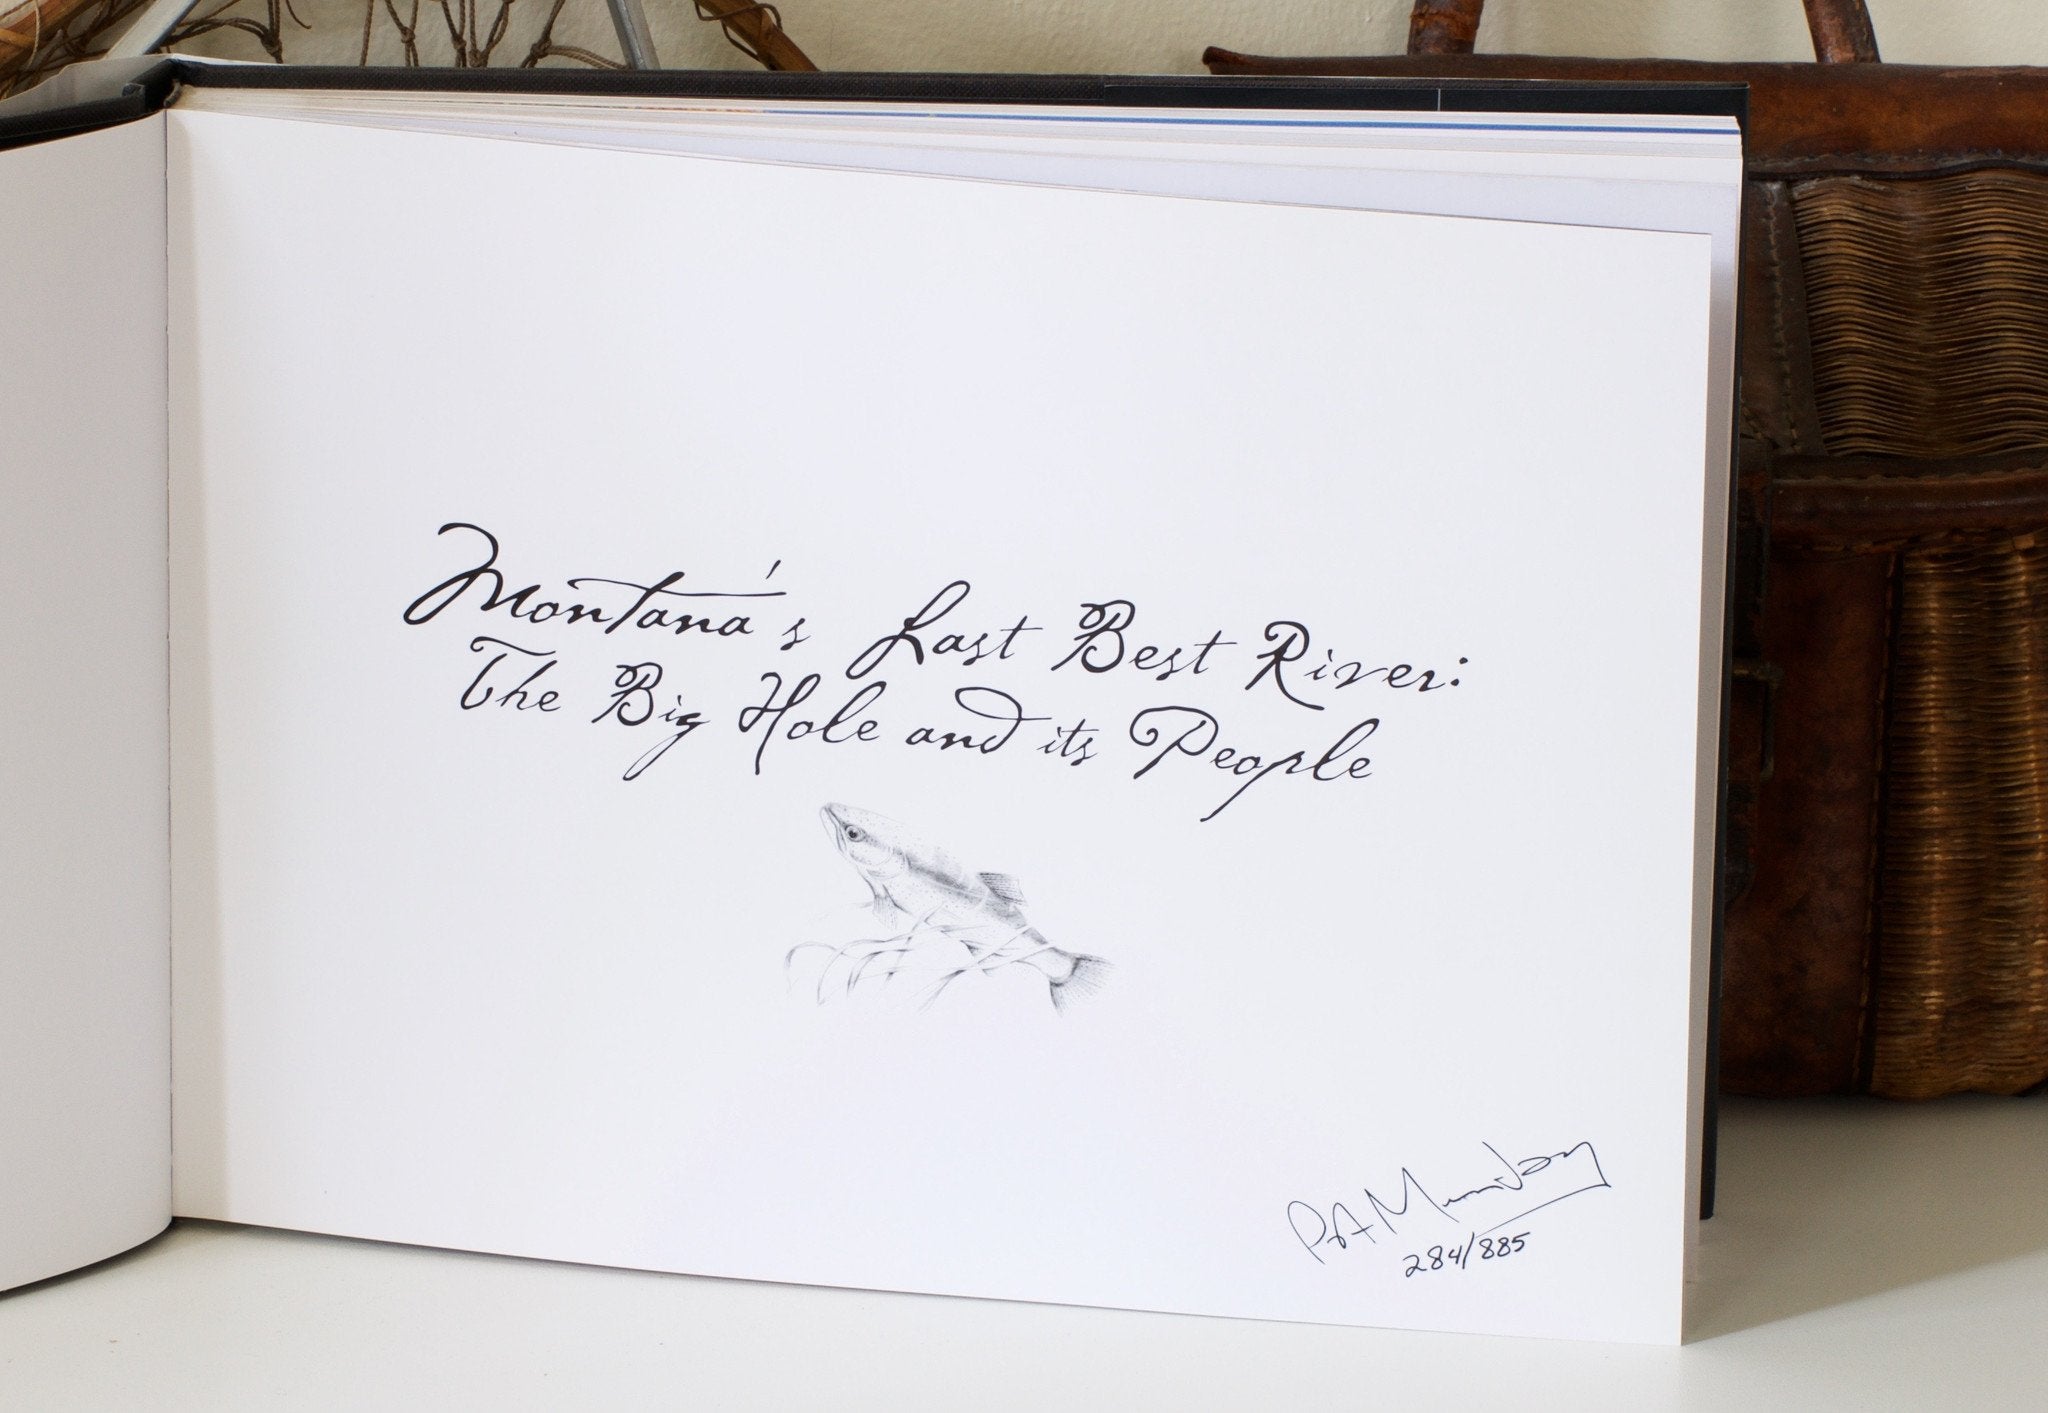 Montana's Last Best River:
The Big Hole and its People
Pat Munday
284/885